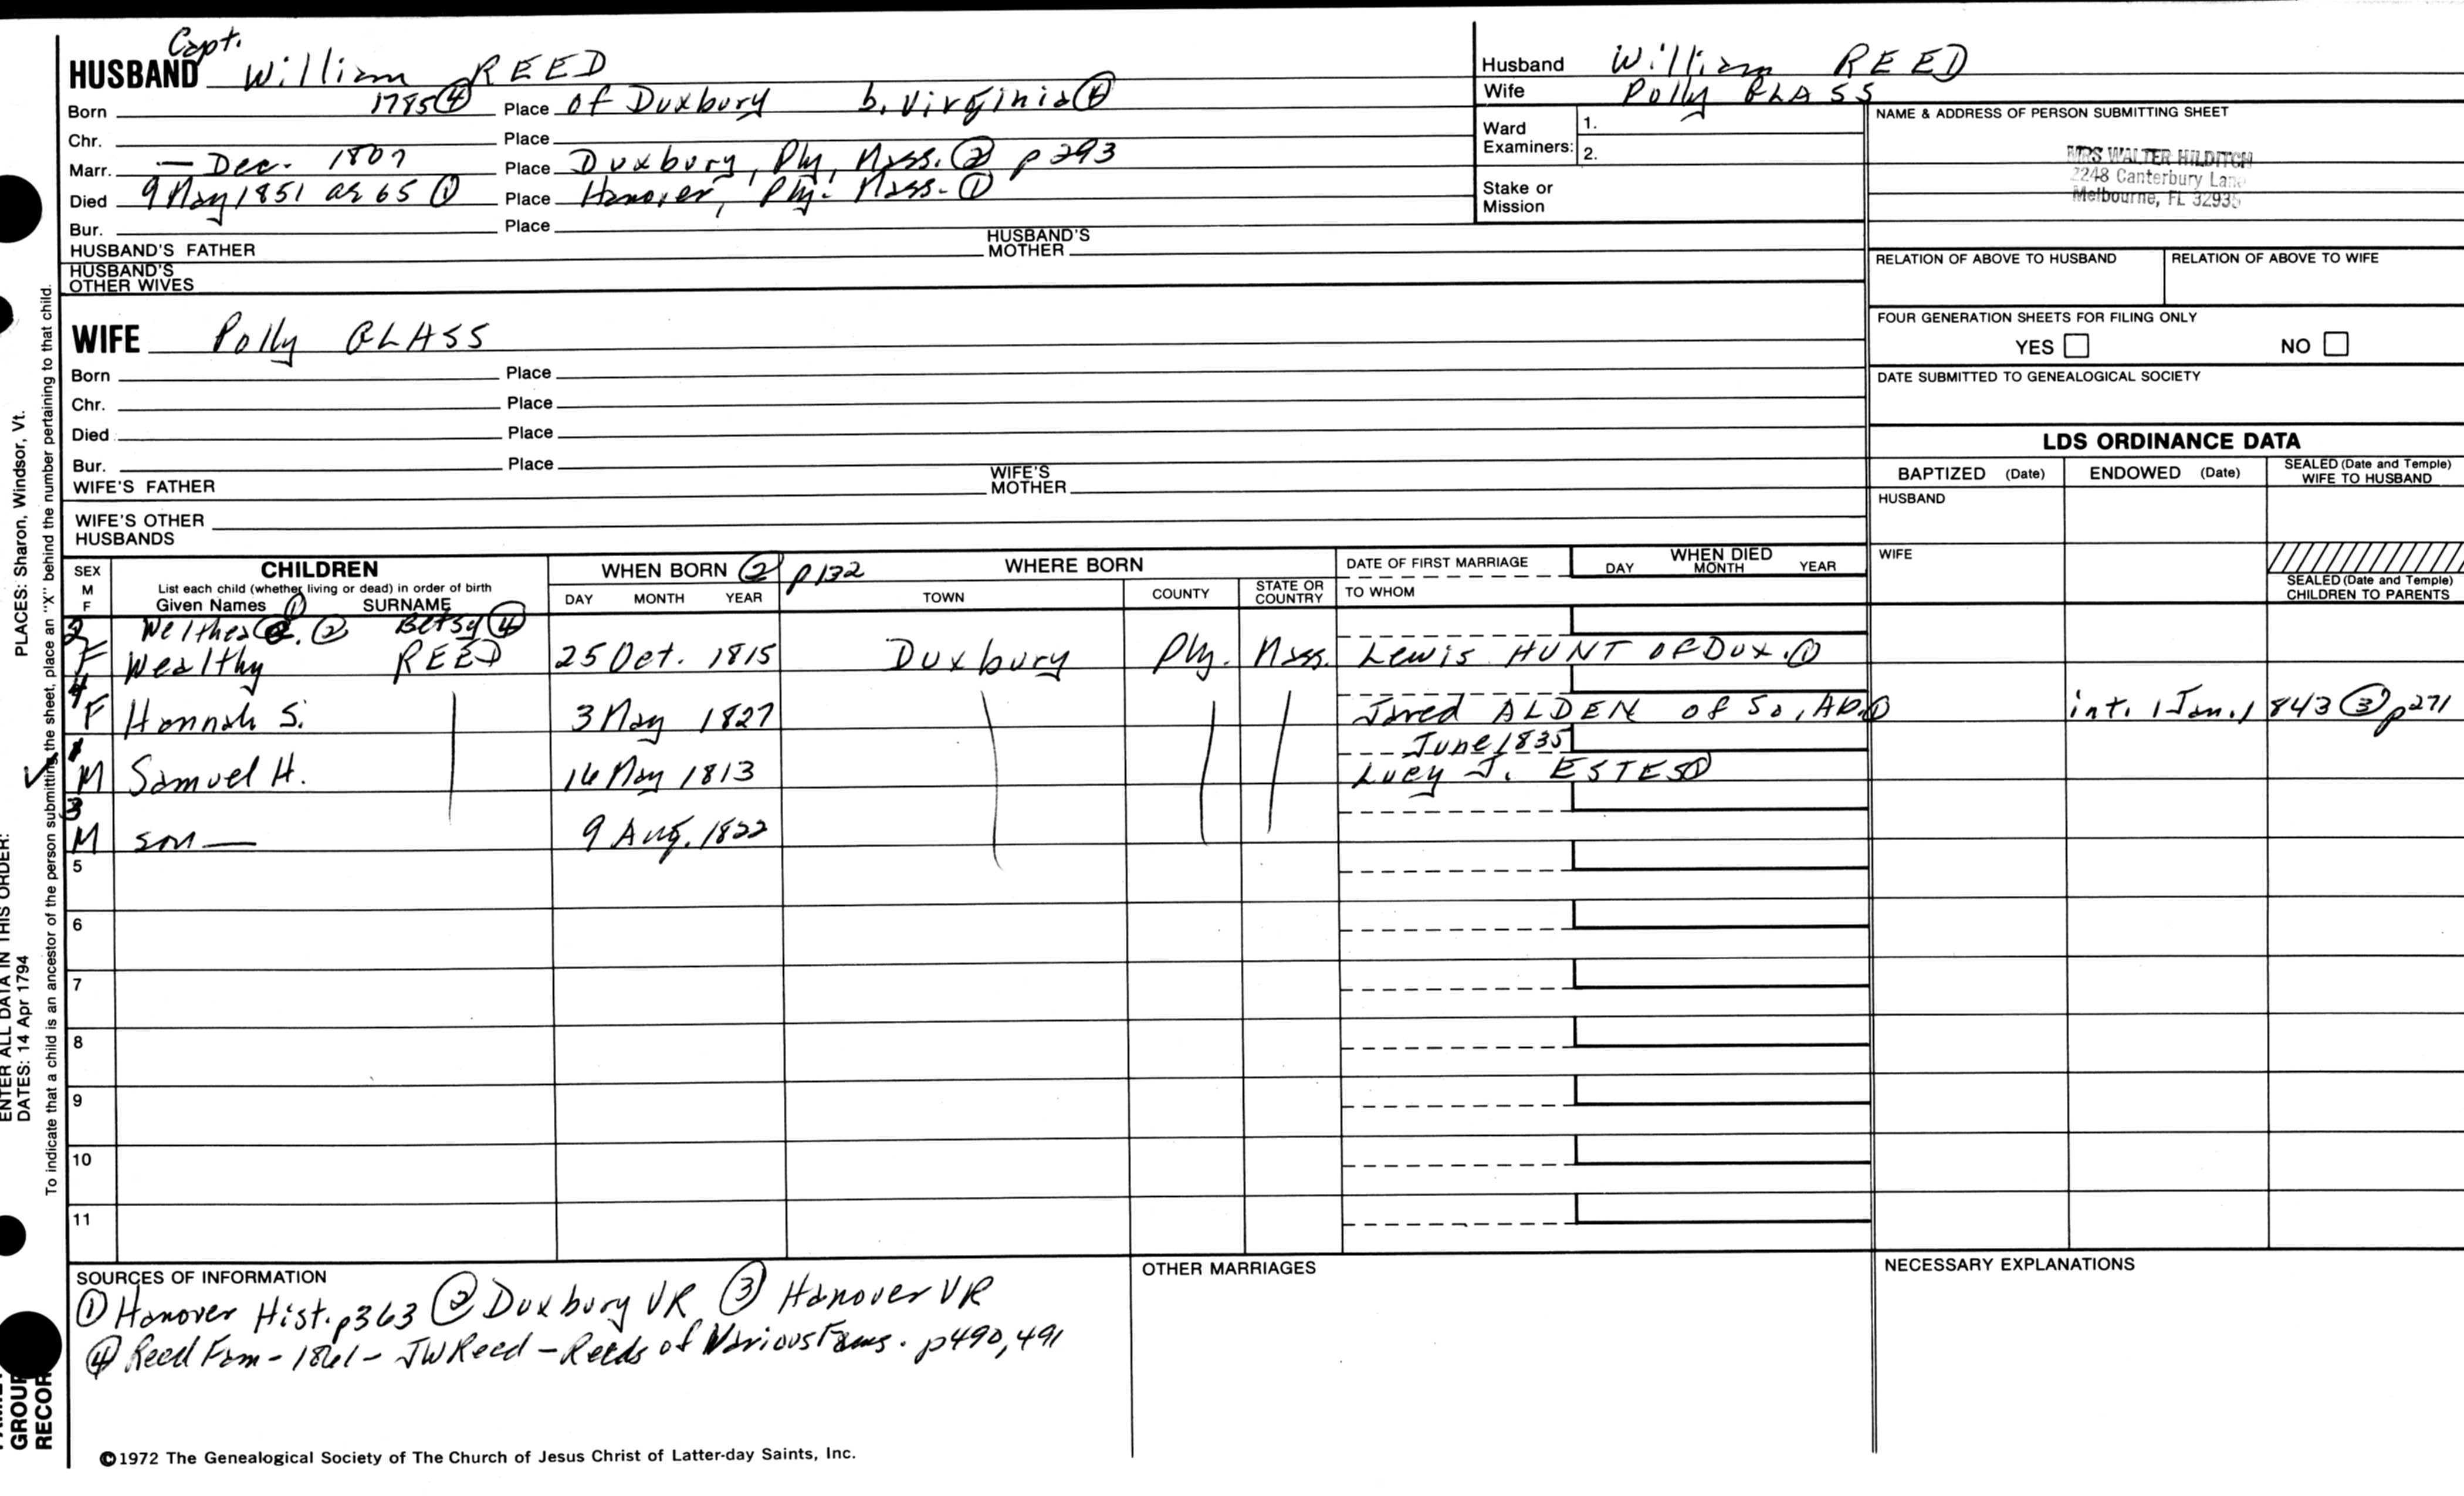 Capt.
HUSBAND William REED
Born 1785 ④ Place of Duxbury b. Virginia ④
Chr. Place
Marr. — Dec. 1807 Place Duxbury, Ply, Mass. ② p 293
Died 9 May 1851 ae 65 ① Place Hanover, Ply. Mass. ①
Bur. Place
HUSBAND'S FATHER HUSBAND'S MOTHER
HUSBAND'S OTHER WIVES
Husband William REED
Wife Polly GLASS
Ward Examiners: 1.
2.
Stake or Mission
NAME & ADDRESS OF PERSON SUBMITTING SHEET
MRS WALTER HILDITCH
2248 Canterbury Lane
Melbourne, FL 32935
RELATION OF ABOVE TO HUSBAND RELATION OF ABOVE TO WIFE
FOUR GENERATION SHEETS FOR FILING ONLY
YES NO
DATE SUBMITTED TO GENEALOGICAL SOCIETY
WIFE Polly GLASS
Born Place
Chr. Place
Died Place
Bur. Place
WIFE'S FATHER WIFE'S MOTHER
WIFE'S OTHER HUSBANDS
LDS ORDINANCE DATA
BAPTIZED (Date) ENDOWED (Date) SEALED (Date and Temple) WIFE TO HUSBAND
HUSBAND
WIFE
SEALED (Date and Temple) CHILDREN TO PARENTS
SEX M F
CHILDREN
List each child (whether living or dead) in order of birth
Given Names ① SURNAME
WHEN BORN ② p132
DAY MONTH YEAR
WHERE BORN
TOWN COUNTY STATE OR COUNTRY
DATE OF FIRST MARRIAGE
TO WHOM
WHEN DIED
DAY MONTH YEAR
2 Welthea ② Betsy ④
F Wealthy REED 25 Oct. 1815 Duxbury Ply. Mass. Lewis HUNT of Dux. ①
4
F Hannah S. 3 May 1827 Jared ALDEN of So. Ab. ① int. 1 Jan. 1843 ③ p271
1 June 1835
M Samuel H. 16 May 1813 Lucy J. ESTES ①
3
M son — 9 Aug. 1822
5
6
7
8
9
10
11
SOURCES OF INFORMATION
① Hanover Hist. p363 ② Duxbury VR ③ Hanover VR
④ Reed Fam - 1861 - JW Reed - Reeds of Various Fams. p490, 491
OTHER MARRIAGES
NECESSARY EXPLANATIONS
©1972 The Genealogical Society of The Church of Jesus Christ of Latter-day Saints, Inc.
ENTER ALL DATA IN THIS ORDER:
DATES: 14 Apr 1794 PLACES: Sharon, Windsor, Vt.
To indicate that a child is an ancestor of the person submitting the sheet, place an "X" behind the number pertaining to that child.
GROUP
RECOR